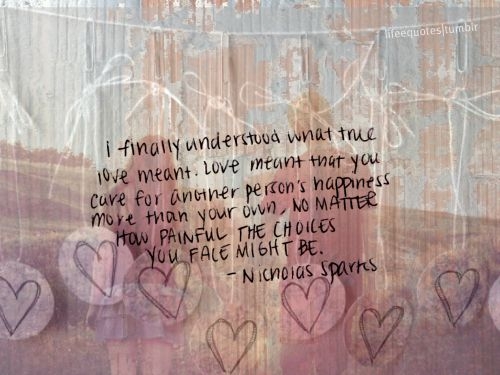 lifeequotes|tumblr
i finally understood what true
love meant. Love meant that you
care for another person's happiness
more than your own, NO MATTER
HOW PAINFUL THE CHOICES
YOU FACE MIGHT BE.
- Nicholas Sparks